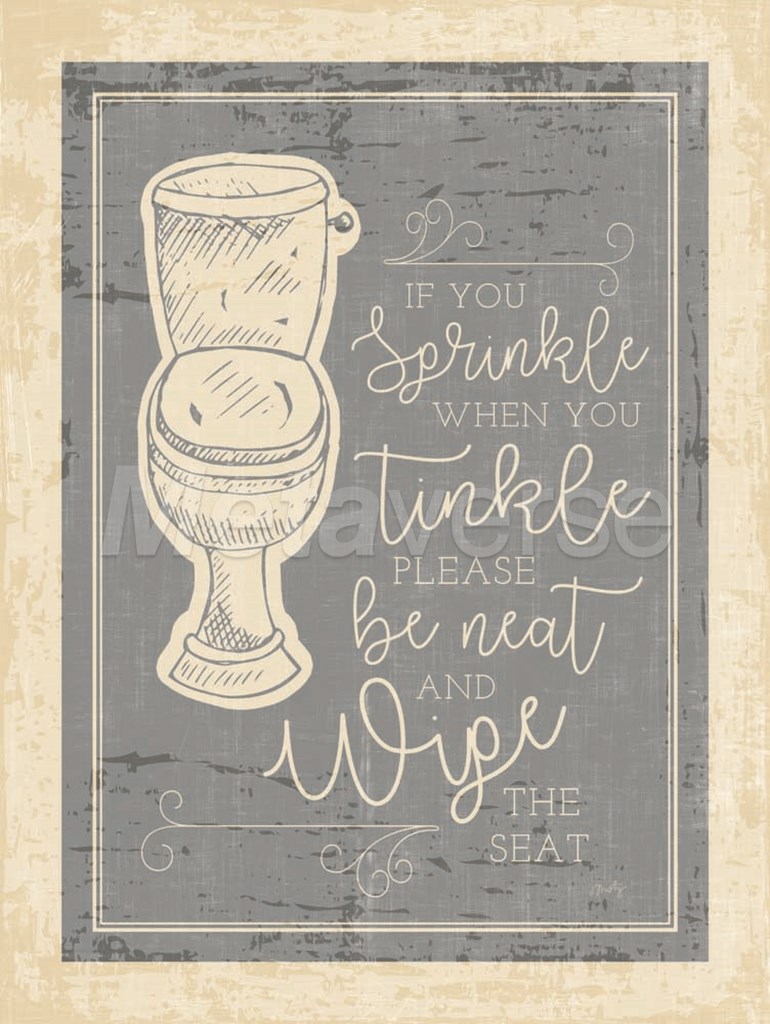 IF YOU
Sprinkle
WHEN YOU
Tinkle
Metaverse
PLEASE
be neat
AND
Wipe
THE
SEAT